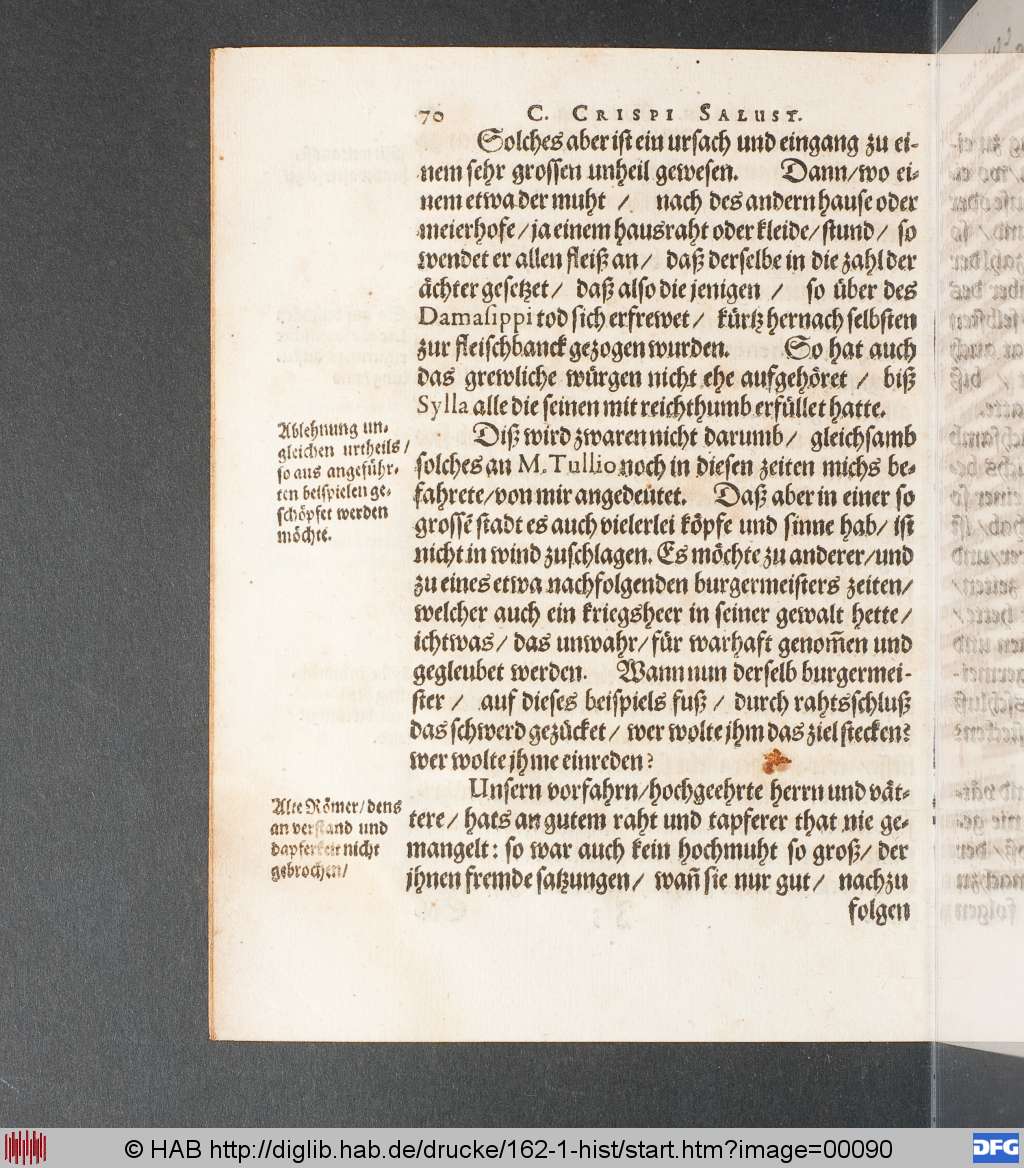 70 C. CRISPI SALUST.
Solches aber ist ein ursach und eingang zu ei-
nem sehr grossen unheil gewesen. Dann/wo ei-
nem etwa der muht / nach des andern hause oder
meierhofe/ja einem hausraht oder kleide/stund/ so
wendet er allen fleiß an/ daß derselbe in die zahl der
ächter gesetzet/ daß also die jenigen / so über des
Damasippi tod sich erfrewet/ kürtz hernach selbsten
zur fleischbanck gezogen wurden. So hat auch
das grewliche würgen nicht ehe aufgehöret / biß
Sylla alle die seinen mit reichthumb erfüllet hatte.
Ablehnung un-
gleichen urtheils/
so aus angeführ-
ten beispielen ge-
schöpfet werden
möchte.
Diß wird zwaren nicht darumb/ gleichsamb
solches an M. Tullio noch in diesen zeiten michs be-
fahrete/von mir angedeutet. Daß aber in einer so
grossẽ stadt es auch vielerlei köpfe und sinne hab/ ist
nicht in wind zuschlagen. Es möchte zu anderer/und
zu eines etwa nachfolgenden burgermeisters zeiten/
welcher auch ein kriegsheer in seiner gewalt hette/
ichtwas/ das unwahr/für warhaft genom̃en und
gegleubet werden. Wann nun derselb burgermei-
ster / auf dieses beispiels fuß / durch rahtsschluß
das schwerd gezücket/ wer wolte jhm das ziel stecken?
wer wolte jhme einreden?
Alte Römer/dens
an verstand und
dapferkeit nicht
gebrochen/
Unsern vorfahrn/hochgeehrte herrn und vät-
tere/ hats an gutem raht und tapferer that nie ge-
mangelt: so war auch kein hochmuht so groß/ der
jhnen fremde satzungen/ wañ sie nur gut/ nachzu
folgen
© HAB http://diglib.hab.de/drucke/162-1-hist/start.htm?image=00090
DFG